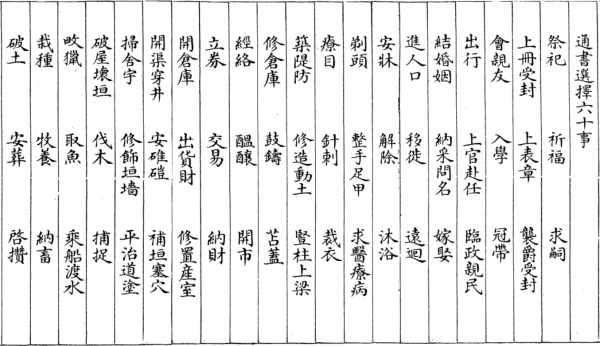 通書選擇六十事
祭祀 祈福 求嗣
上冊受封 上表章 襲爵受封
會親友 入學 冠帶
出行 上官赴任 臨政親民
結婚姻 納采問名 嫁娶
進人口 移徙 遠迴
安牀 解除 沐浴
剃頭 整手足甲 求醫療病
療目 針刺 裁衣
築隄防 修造動土 豎柱上梁
修倉庫 鼓鑄 苫蓋
經絡 醞釀 開市
立券 交易 納財
開倉庫 出貨財 修置産室
開渠穿井 安碓磑 補垣塞穴
掃舍宇 修飾垣墻 平治道塗
破屋壞垣 伐木 捕捉
畋獵 取魚 乘船渡水
栽種 牧養 納畜
破土 安葬 啓攢